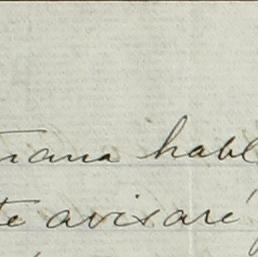 ñana habl
te avisaré